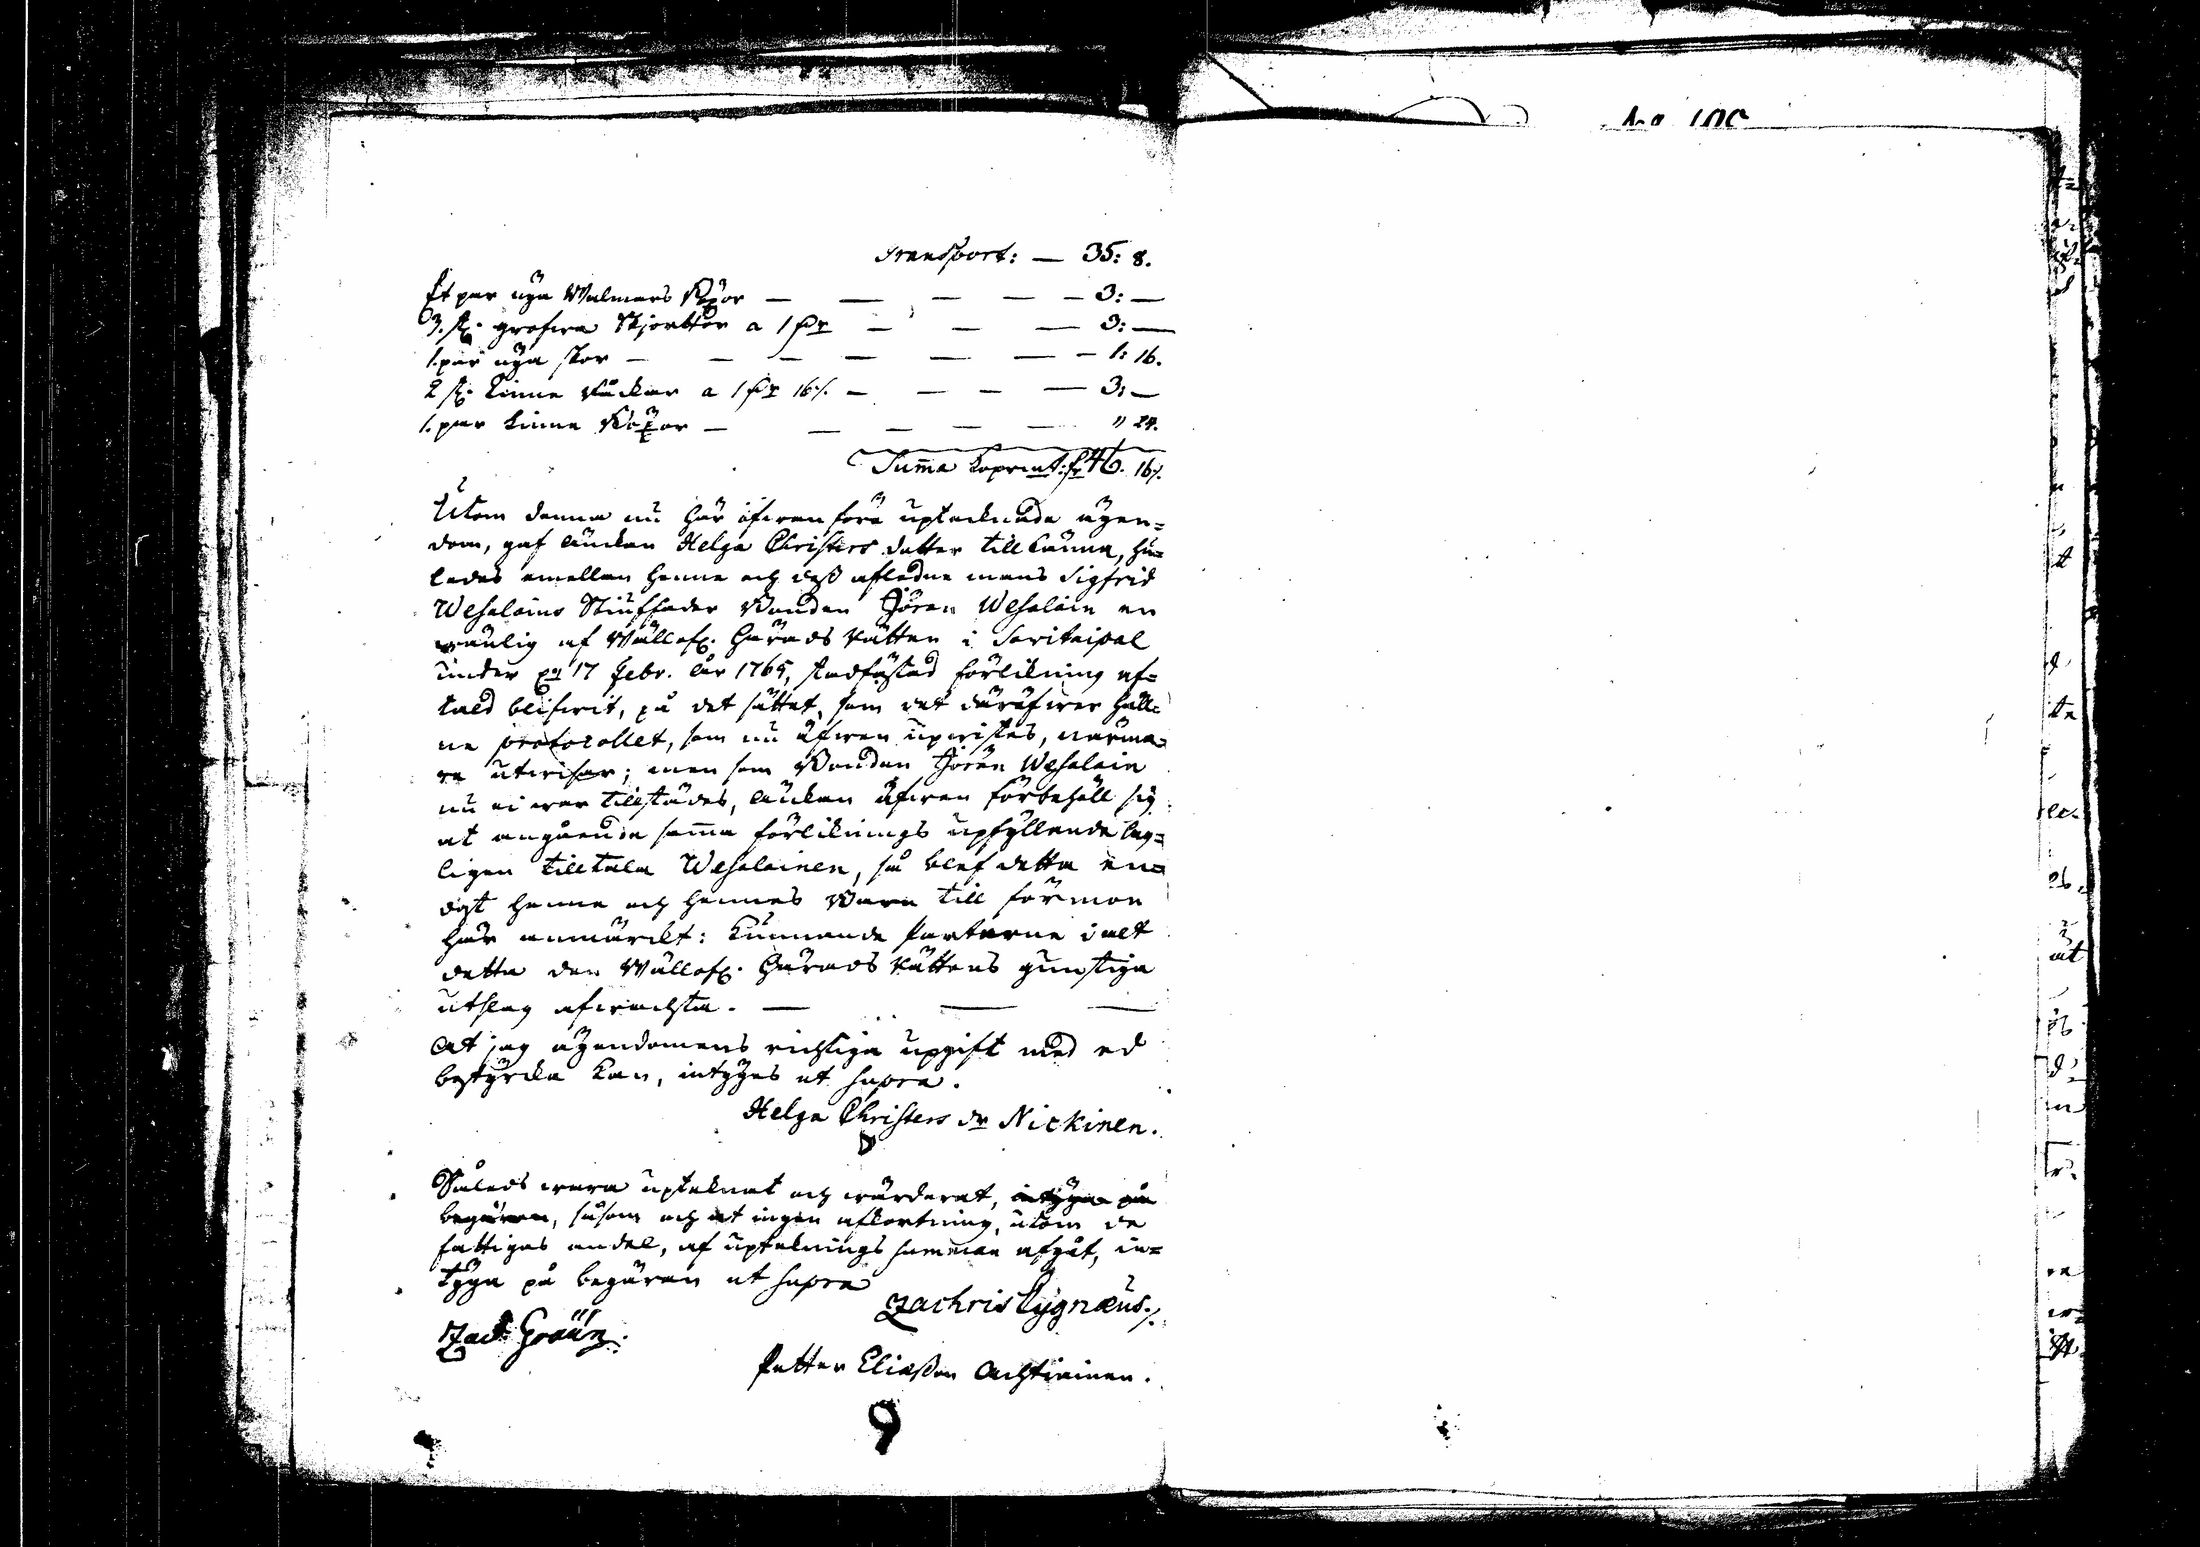 Transport: — 35: 8.
Et par nya Walmars Böxor — — — — — 3: —
3. st. grofwa Skjorttor a 1 — — — 3: —
1. par nya skor — — — — — — — 1: 16.
2 st. Linne Säckar a 1 16 — — — — 3: —
1. par Linne Böxor — — — — — " 24.
Summa Kopr. mt: 46. 16
Utom denna nu här ofwanföre uptecknade egen=
dom, gaf änckan Helga Christers dotter tillkänna, hu=
ledes emellan henne och dess afledne mans Sigfrid
Wehalains Stiuffader Bonden Jöran Wehalain en
wänlig af Wällofl. Härads Rätten i Savitaipal
under den 17 Febr. år 1765, stadfästad förlikning af=
tald blifwit, på det sättet, som det däröfwer håll=
ne protocollet, som nu äfwen upwistes, närma=
re utwisar; men som Bonden Jöran Wehalain
nu ei war tillstädes, änckan äfwen förbehöll sig
at angående samma förliknings upfyllande lag=
ligen tilltala Wehalainen, så blef detta en=
dast henne och hennes Barn till förmon
här anmärckt: kunnande Parterne i alt
detta den Wällofl. Härads Rättens gunstiga
utslag afwackta. — — —
At jag ägendomens richtiga upgift med ed
bestyrcka kan, intyges ut supra.
Helga Christers dr Nickinen.
Således wara uptecknat och wärderat, intyga på
begäran, såsom och at ingen afkortning, utom de
fattigas andel, af uptecknings summan afgåt, in=
tyga på begäran ut supra
Zachris Cygnæus.
Zach Graän.
Petter Eliasson Achtiainen.